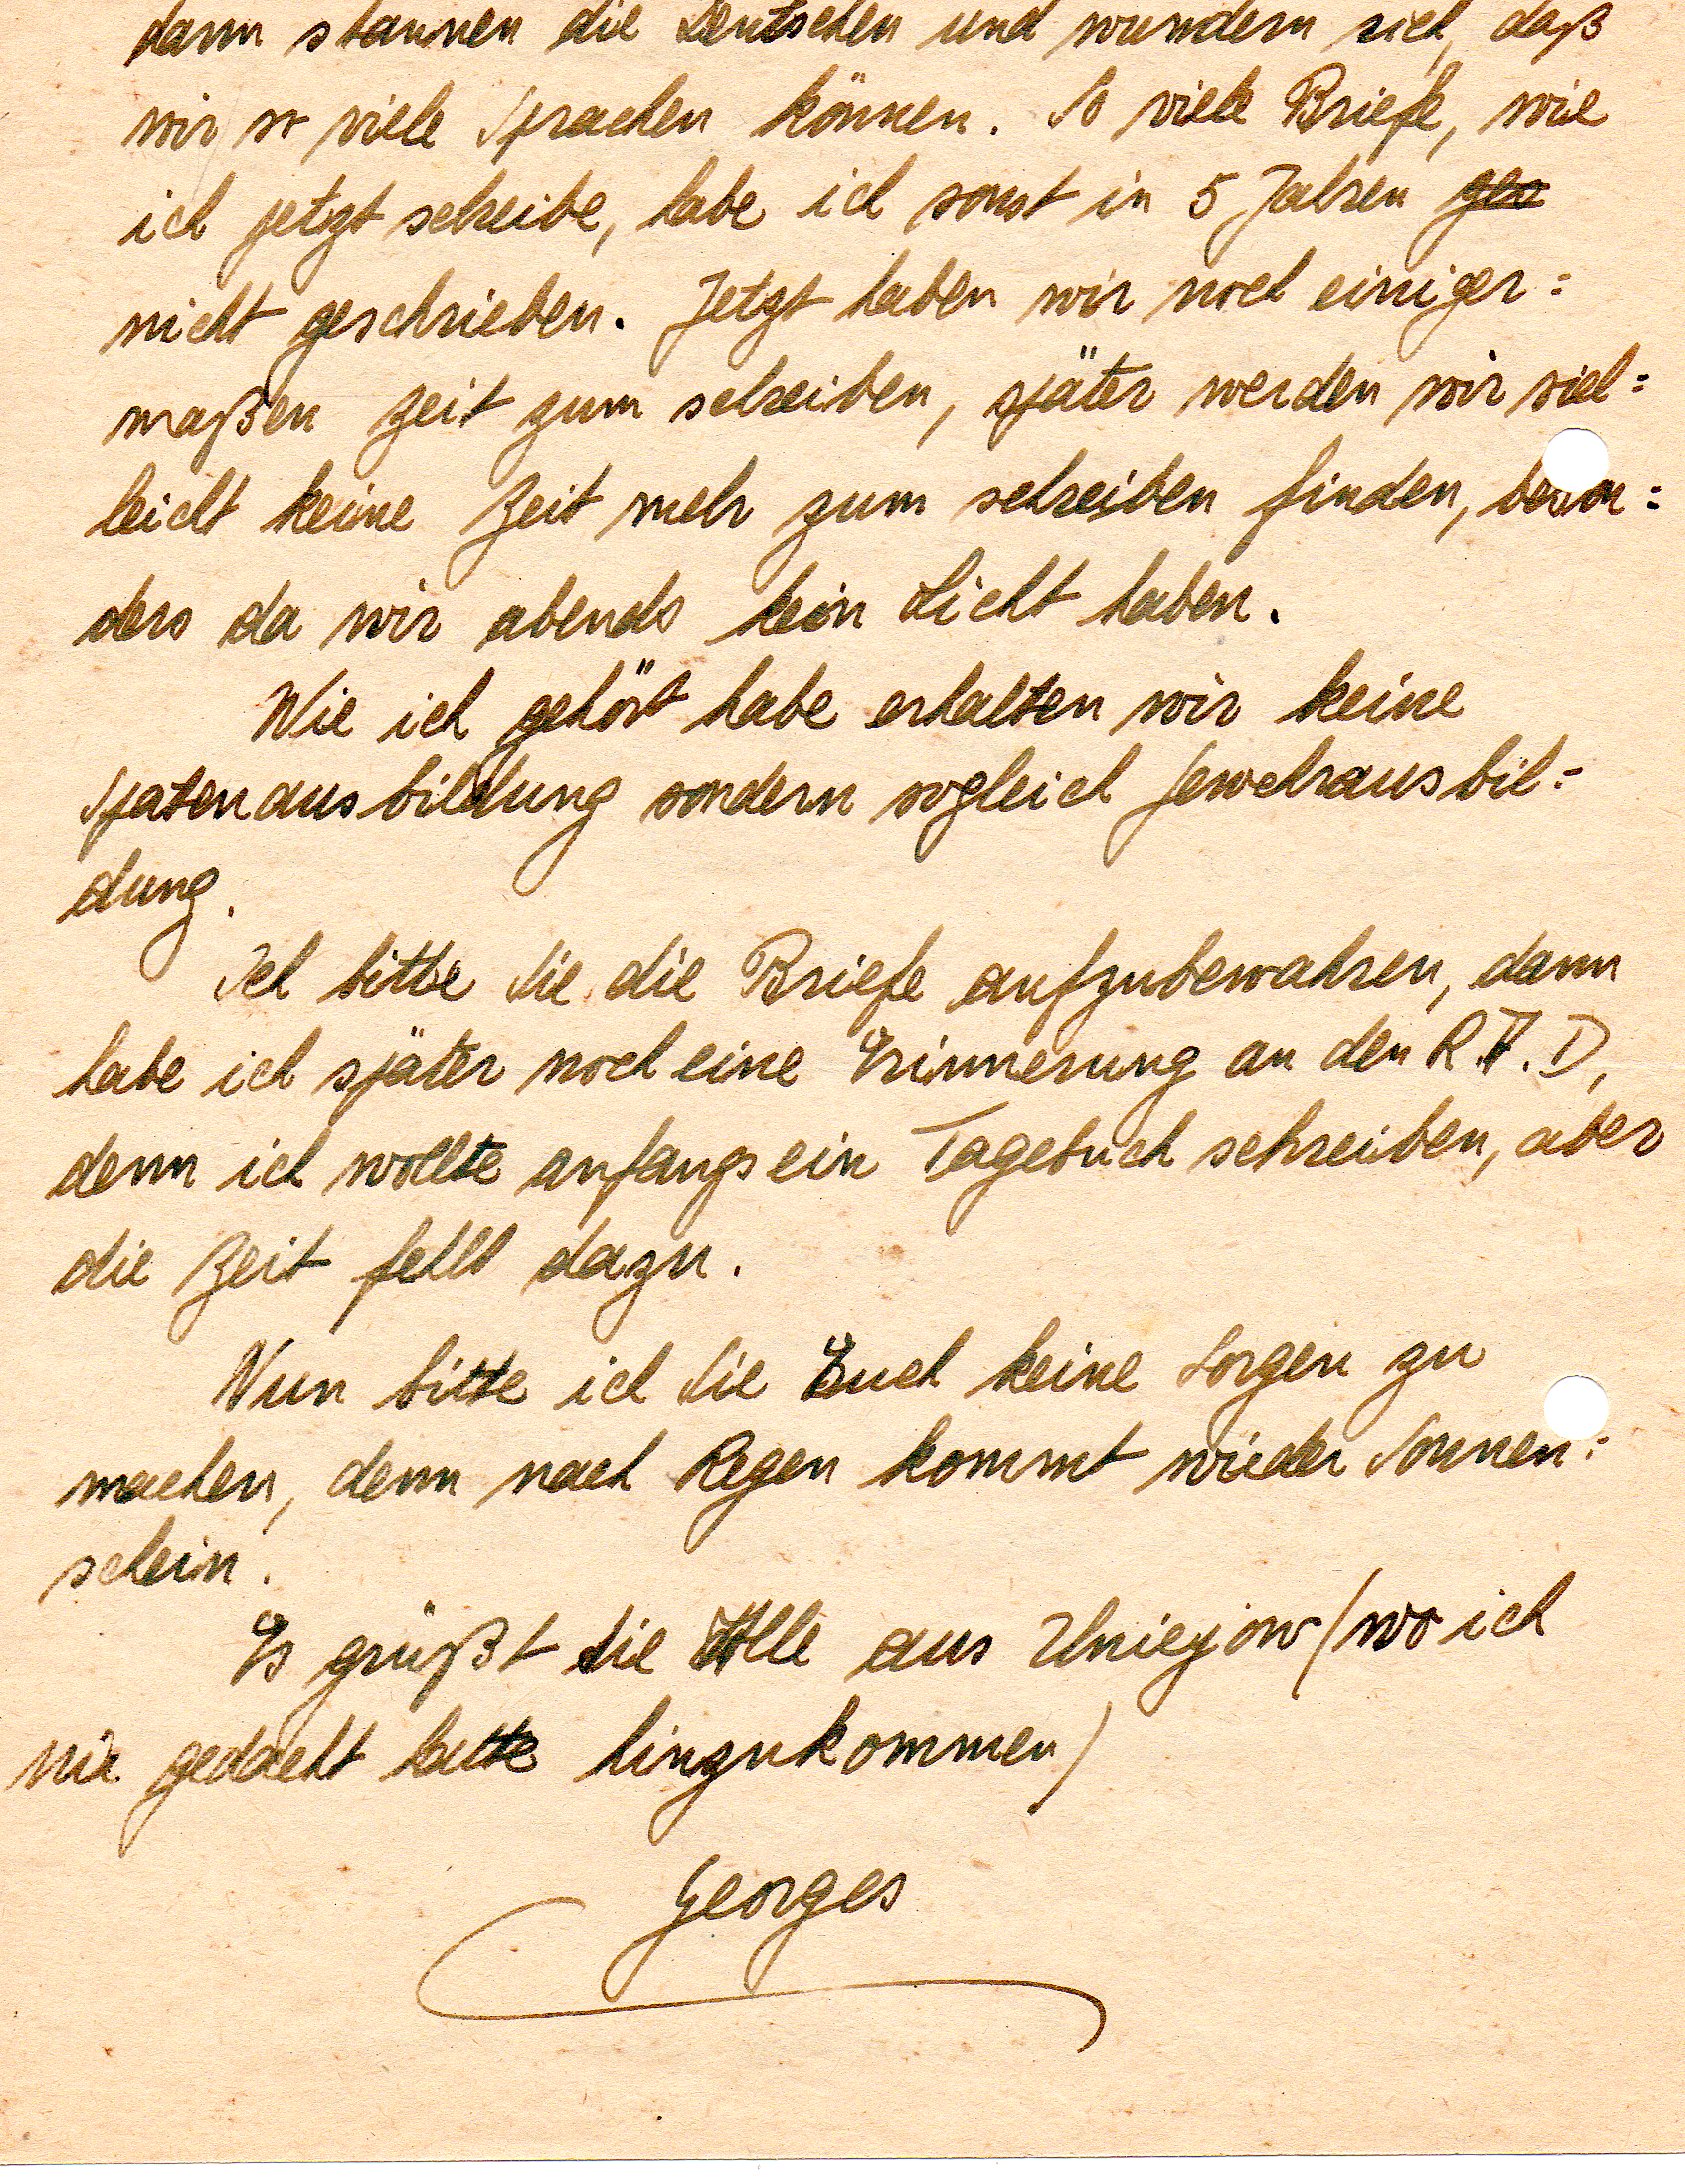 dann staunen die Deutschen und wundern sich, daß
wir so viele Sprachen können. So viele Briefe, wie
ich jetzt schreibe, habe ich sonst in 5 Jahren ges
nicht geschrieben. Jetzt haben wir noch einiger=
maßen Zeit zum schreiben, später werden wir viel=
leicht keine Zeit mehr zum schreiben finden, beson=
ders da wir abends kein Licht haben.
Wie ich gehört habe erhalten wir keine
Spatenausbildung sondern sogleich Gewehrausbil=
dung.
Ich bitte Sie die Briefe aufzubewahren, dann
habe ich später noch eine Erinnerung an den R.A.D,
denn ich wollte anfangs ein Tagebuch schreiben, aber
die Zeit fehlt dazu.
Nun bitte ich Sie Euch keine Sorgen zu
machen, denn nach Regen kommt wieder Sonnen=
schein.
Es grüßt Sie Alle aus Uniejow (wo ich
nie gedacht hätte hinzukommen)
Georges